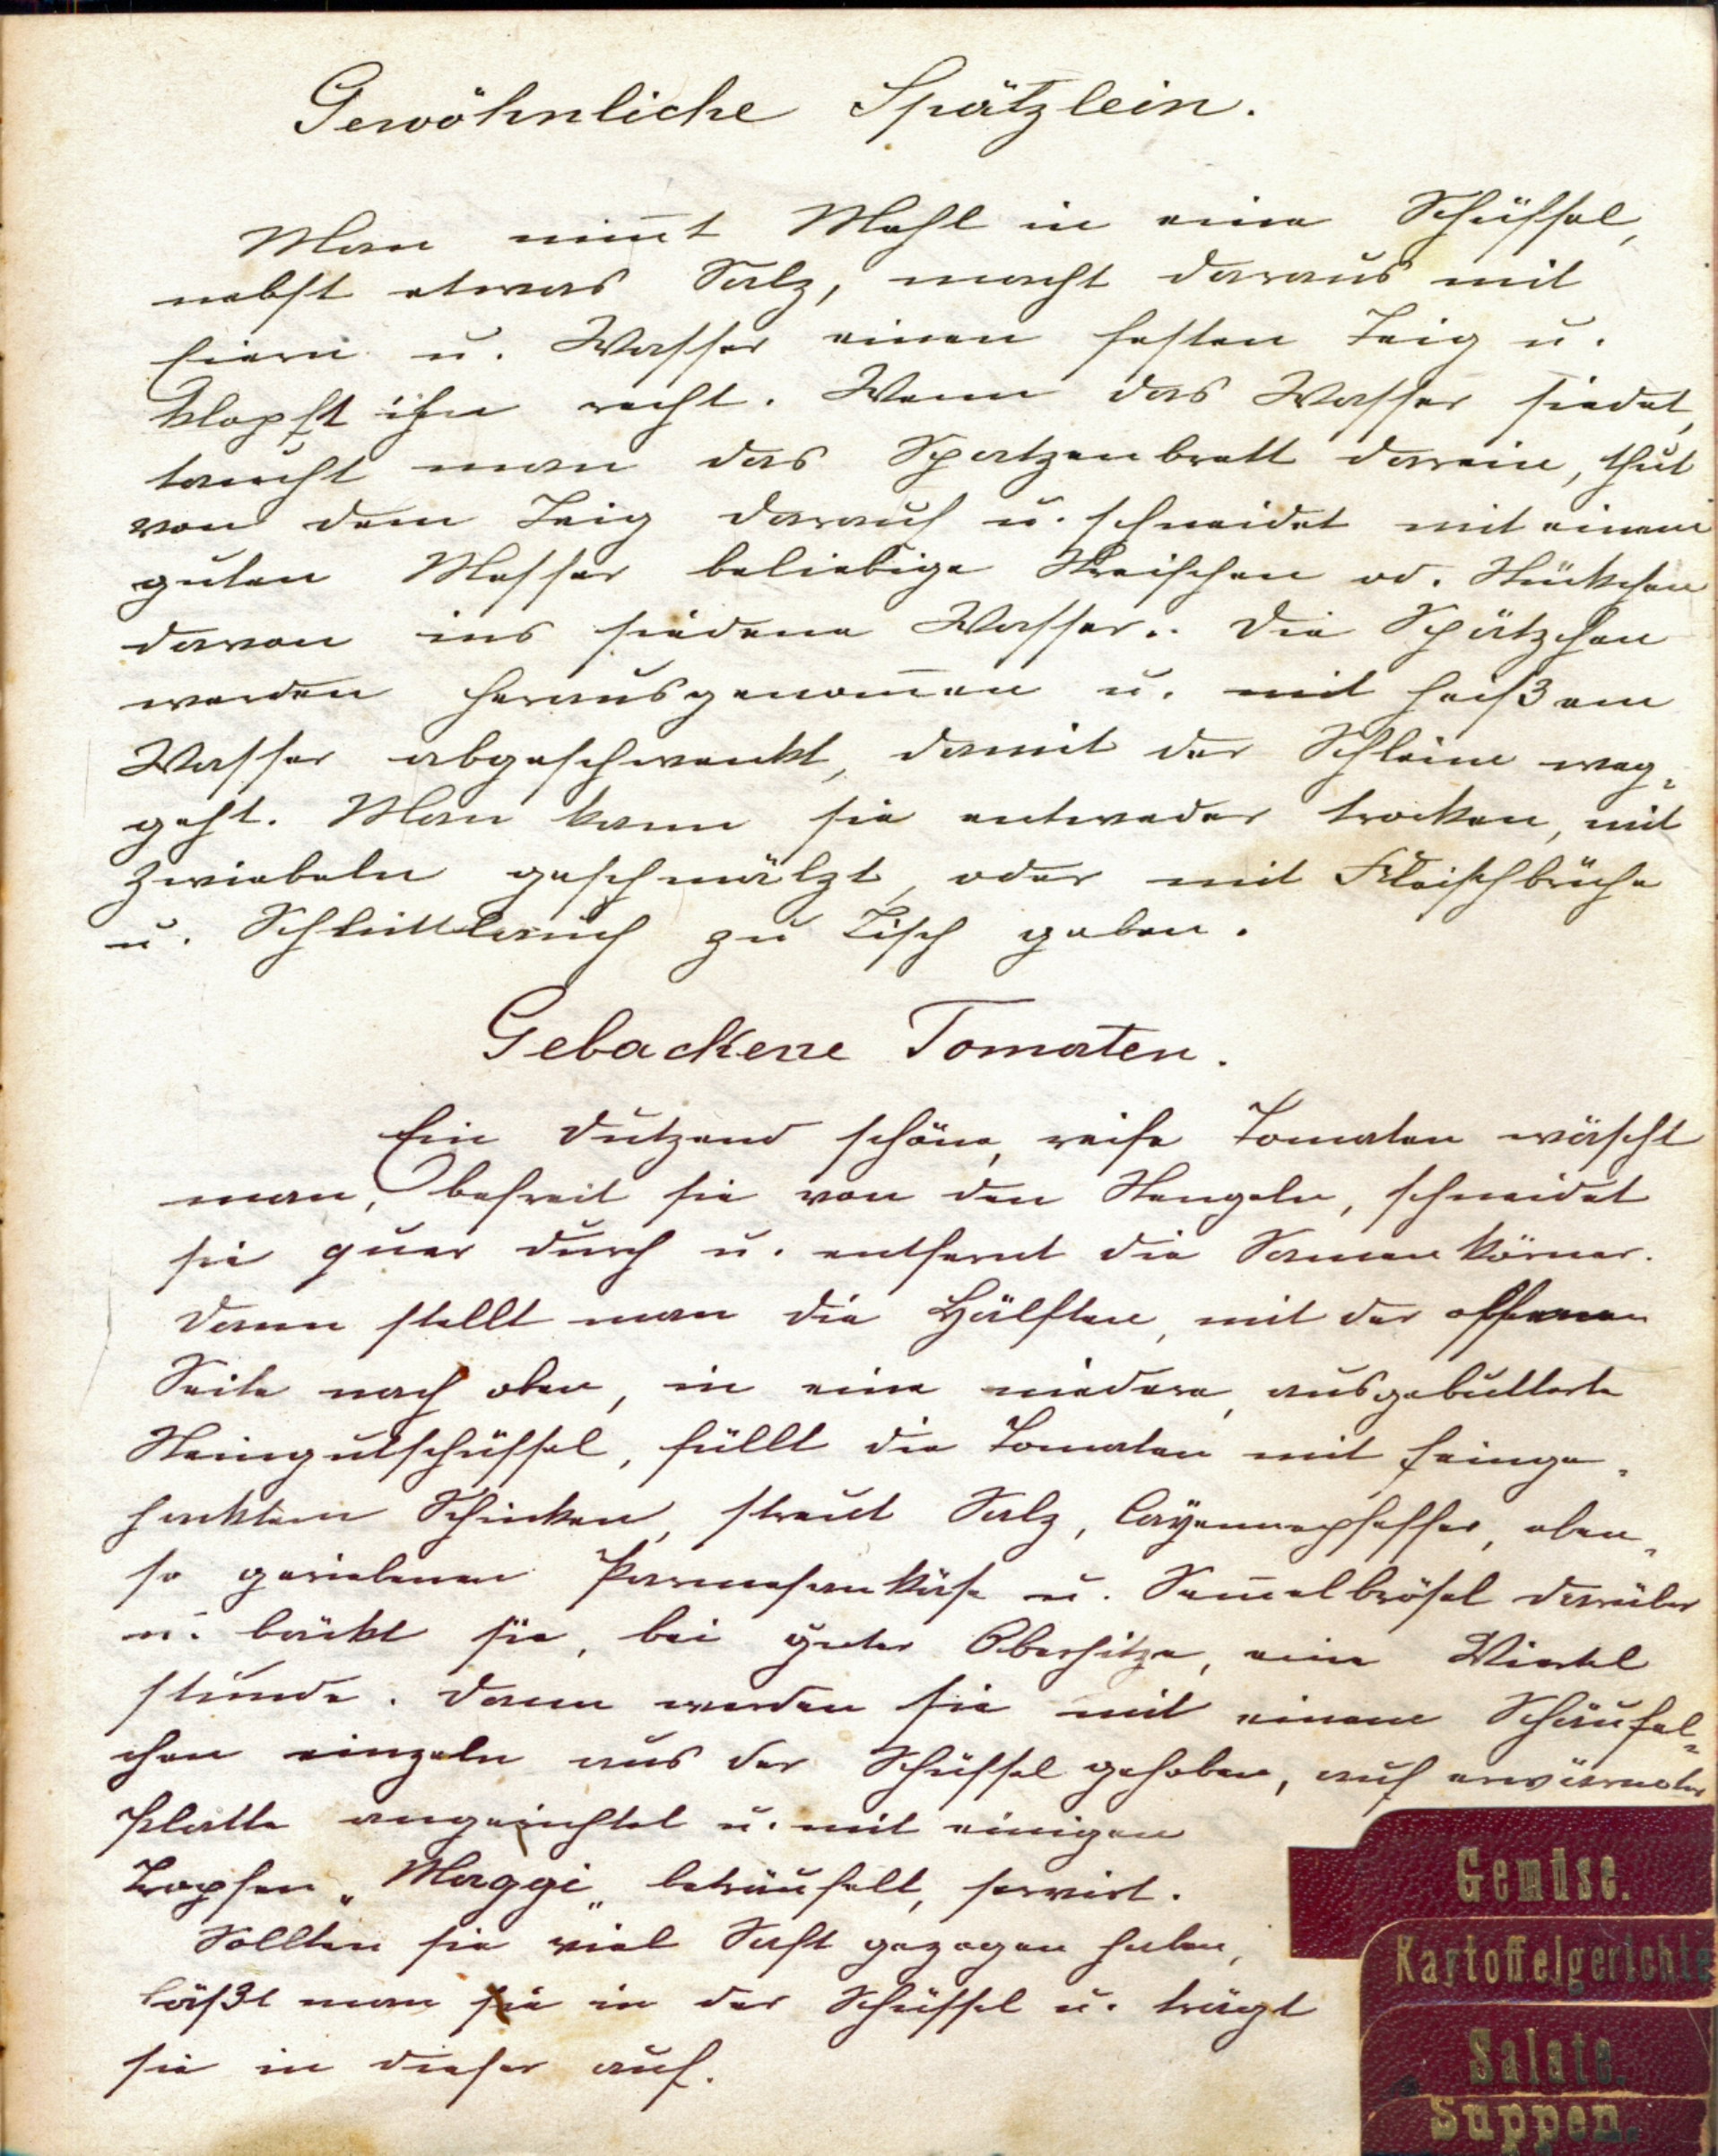 Gewöhnliche Spätzlein.
Man nim̅t Mehl in eine Schüssel,
nebst etwas Salz, macht daraus mit
Eiern u. Wasser einen festen Teig u.
klopft ihn recht. Wenn das Wasser siedet,
taucht man das Spatzenbrett darein, thut
von dem Teig darauf u. schneidet mit einem
guten Messer beliebige Streifchen od. Stückchen
davon ins siedene Wasser.. Die Spätzchen
werden herausgenom̅en u. mit heißem
Wasser abgeschwenkt, damit der Schleim weg=
geht. Man kann sie entweder trocken, mit
Zwiebeln geschmälzt, oder mit Fleischbrühe
u. Schnittlauch zu Tisch geben.
Gebackene Tomaten.
Ein Dutzend schöne, reife Tomaten wäscht
man, befreit sie von den Stengeln, schneidet
sie quer durch u. entfernt die Samenkörner.
Dann stellt man die Hälften, mit der offenen
Seite nach oben, in eine niedere, ausgebutterte
Steingutschüssel, füllt die Tomaten mit feinge=
hacktem Schinken, streut Salz, Cayennepfeffer, eben=
so geriebenen Parmesankäse u. Sem̅elbrösel darüber
u. bäckt sie, bei guter Oberhitze, eine Viertel
stunde. Dann werden sie mit einem Schäufel=
chen einzeln aus der Schüssel gehoben, auf erwärmter
Platte angerichtet u. mit einigen
Tropfen „Maggi" beträufelt, servirt.
Sollten sie viel Saft gezogen haben,
läßt man sie in der Schüssel u. trägt
sie in dieser auf.
Gemüse.
Kartoffelgerichte
Salate.
Suppen.